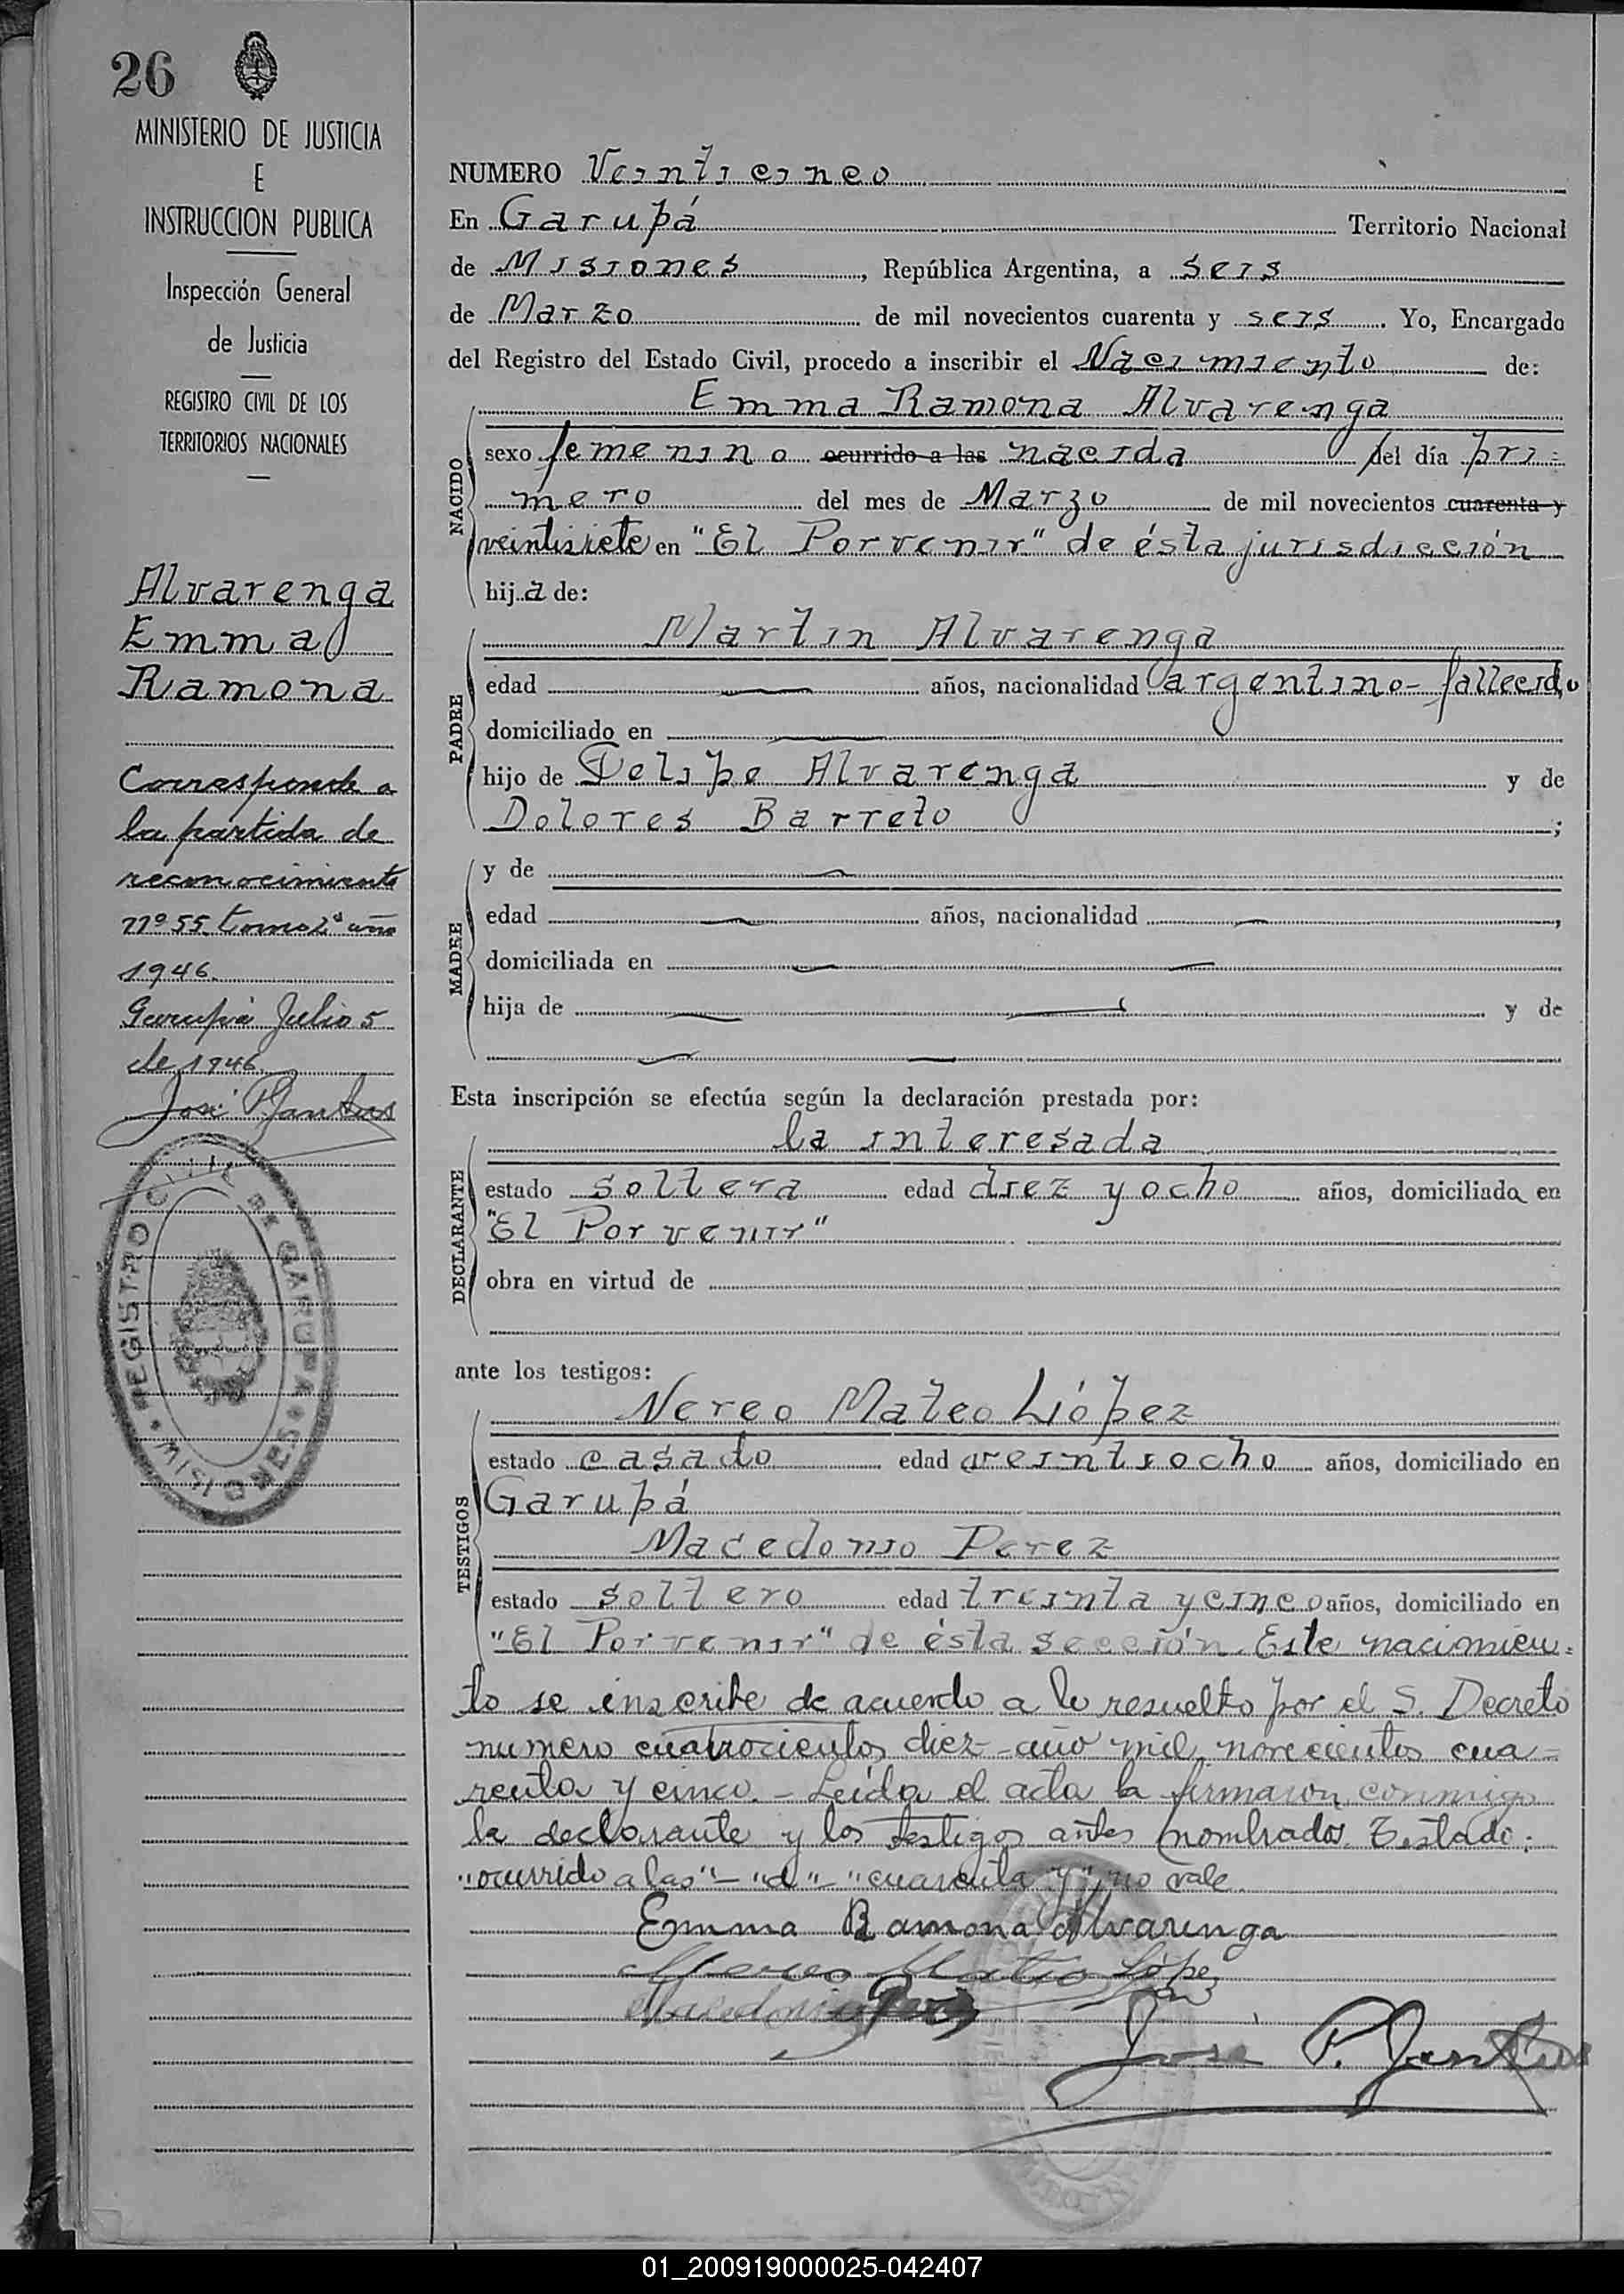 26
MINISTERIO DE JUSTICIA
E
INSTRUCCION PUBLICA
Inspección General
de Justicia
REGISTRO CIVIL DE LOS
TERRITORIOS NACIONALES
Alvarenga
Emma
Ramona
Corresponde a
la partida de
reconocimiento
nº 55 tomo 2º año
1946.
Garupá Julio 5
de 1946.
José P.
REGISTRO CIVIL DE GARUPA
MISIONES
NUMERO Veinticinco
En Garupá Territorio Nacional
de Misiones, República Argentina, a seis
de Marzo de mil novecientos cuarenta y seis. Yo, Encargado
del Registro del Estado Civil, procedo a inscribir el Nacimiento de:
NACIDO
Emma Ramona Alvarenga
sexo femenino ocurrido a las nacida del día pri-
mero del mes de Marzo de mil novecientos cuarenta y
veintisiete en "El Porvenir" de ésta jurisdicción
hija de:
PADRE
Martin Alvarenga
edad años, nacionalidad argentino- fallecido
domiciliado en
hijo de Felipe Alvarenga y de
Dolores Barreto ;
MADRE
y de
edad años, nacionalidad ,
domiciliada en
hija de y de
Esta inscripción se efectúa según la declaración prestada por:
DECLARANTE
la interesada
estado soltera edad diez y ocho años, domiciliada en
"El Porvenir"
obra en virtud de
ante los testigos:
TESTIGOS
Nereo Mateo López
estado casado edad veintiocho años, domiciliado en
Garupá
Macedonio Perez
estado soltero edad treinta y cinco años, domiciliado en
"El Porvenir" de ésta sección. Este nacimien-
to se inscribe de acuerdo a lo resuelto por el S. Decreto
numero cuatrocientos diez - año mil novecientos cua-
renta y cinco. - Leída el acta la firmaron conmigo
la declarante y los testigos antes nombrados. Testado:
"ocurrido a las" - "d" - "cuarenta y" no vale.
Emma Ramona Alvarenga
Nereo Mateo López
Macedonio Perez
José P.
01_200919000025-042407